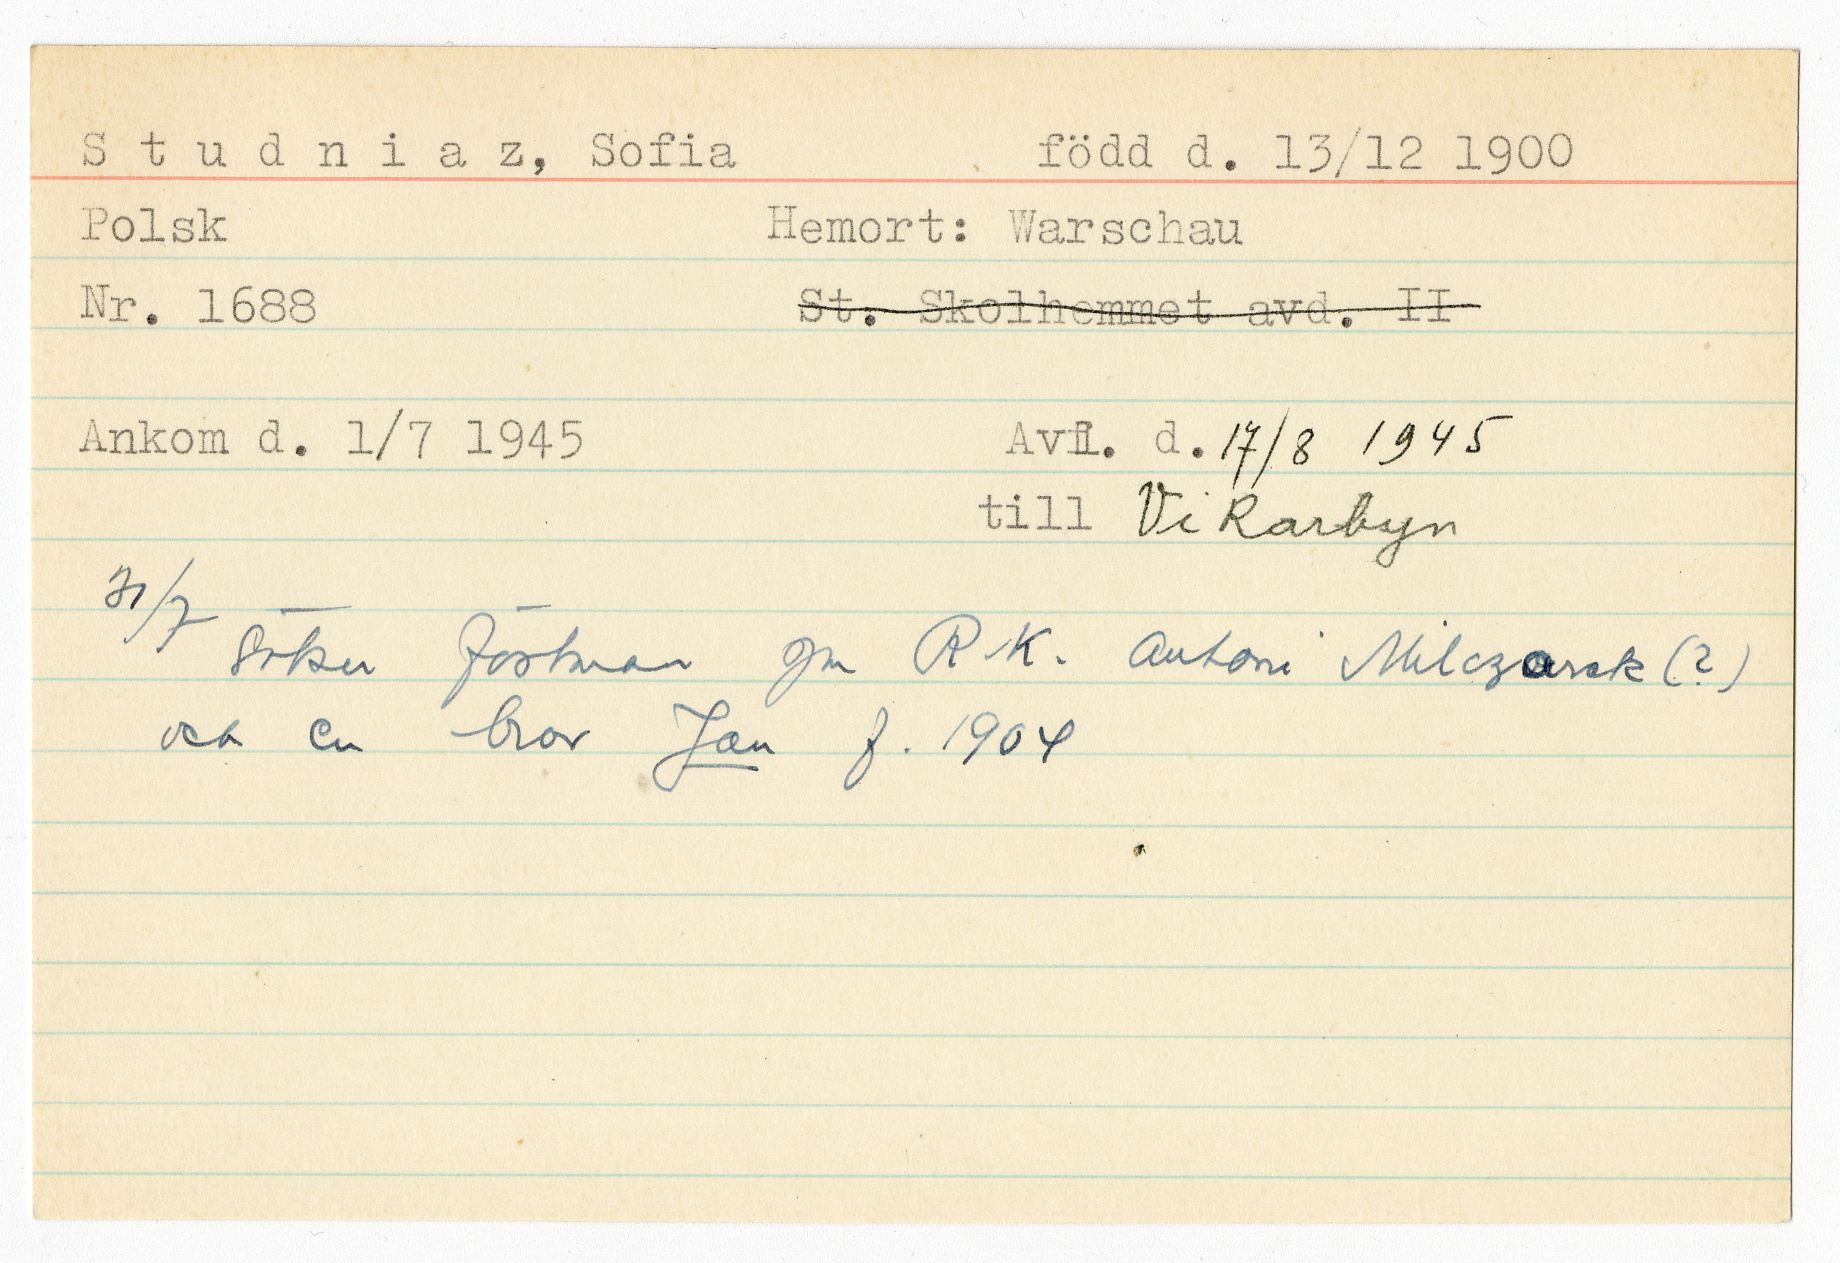 S t u d n i a z, Sofia född d. 13/12 1900
Polsk Hemort: Warschau
Nr. 1688 St. Skolhemmet avd. II
Ankom d. 1/7 1945 Avfl. d. 17/8 1945
till Vikarbyn
31/7
Söker fästman gm R.K. Antoni Milczarek (?)
och en bror Jan f. 1904